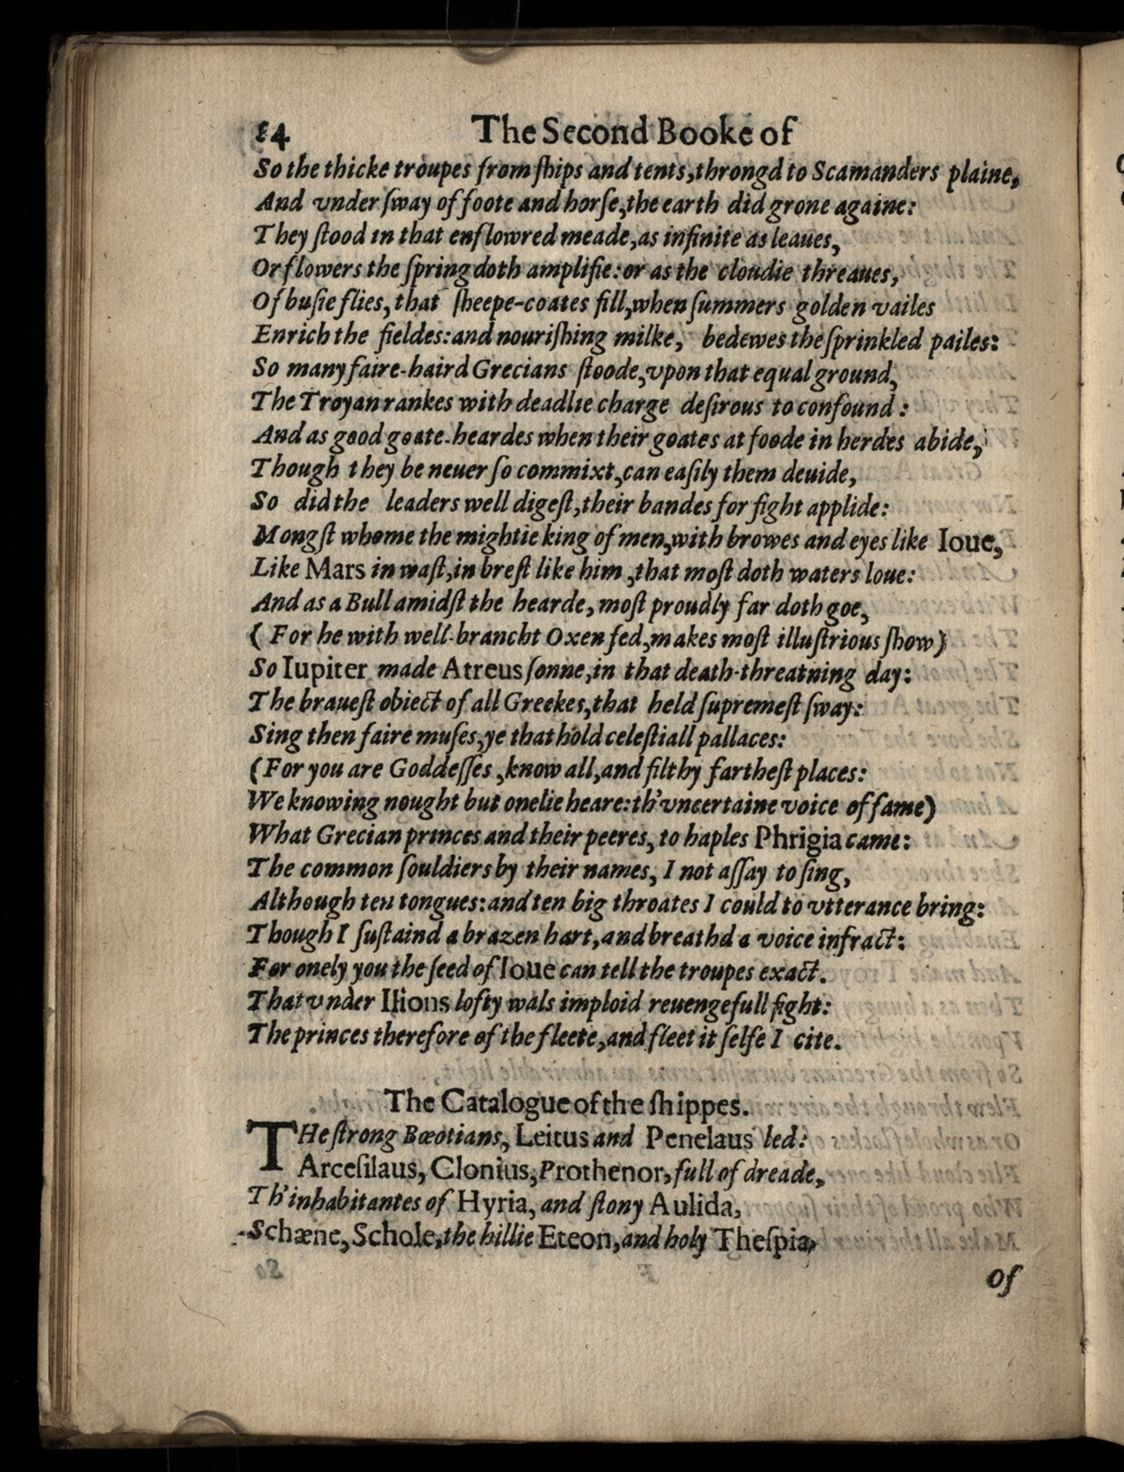 84 The Second Booke of
So the thicke troupes from ſhips and tents, throngd to Scamanders plaine,
And vnder ſway of foote and horſe, the earth did grone againe:
They ſtood in that enflowred meade, as infinite as leaues,
Or flowers the ſpring doth amplifie: or as the cloudie threaues,
Of buſie flies, that ſheepe-coates fill, when ſummers golden vailes
Enrich the fieldes: and nouriſhing milke, bedewes the ſprinkled pailes:
So many faire-haird Grecians ſtoode, vpon that equal ground,
The Troyan rankes with deadlie charge deſirous to confound:
And as good goate-heardes when their goates at foode in herdes abide,
Though they be neuer ſo commixt, can eaſily them deuide,
So did the leaders well digeſt, their bandes for fight applide:
Mongſt whome the mightie king of men, with browes and eyes like Ioue,
Like Mars in waſt, in breſt like him, that moſt doth waters loue:
And as a Bull amidſt the hearde, moſt proudly far doth goe,
( For he with well-brancht Oxen fed, makes moſt illuſtrious ſhow)
So Iupiter made Atreus ſonne, in that death-threatning day:
The braueſt obiect of all Greekes, that held ſupremeſt ſway:
Sing then faire muſes, ye that hold celeſtiall pallaces:
(For you are Goddeſſes, know all, and filthy fartheſt places:
We knowing nought but onelie heare: th'vncertaine voice of fame)
What Grecian princes and their peeres, to haples Phrigia came:
The common ſouldiers by their names, I not aſſay to ſing,
Although ten tongues: and ten big throates I could to vtterance bring:
Though I ſuſtaind a brazen hart, and breathd a voice infract:
For onely you the ſeed of Ioue can tell the troupes exact.
That vnder Ilions lofty wals imploid reuengefull fight:
The princes therefore of the fleete, and fleet it ſelfe I cite.
The Catalogue of the ſhippes.
THe ſtrong Bœotians, Leitus and Penelaus led:
Arceſilaus, Clonius, Prothenor, full of dreade,
Th'inhabitantes of Hyria, and ſtony Aulida,
Schæne, Schole, the hillie Eteon, and holy Theſpia,
Of